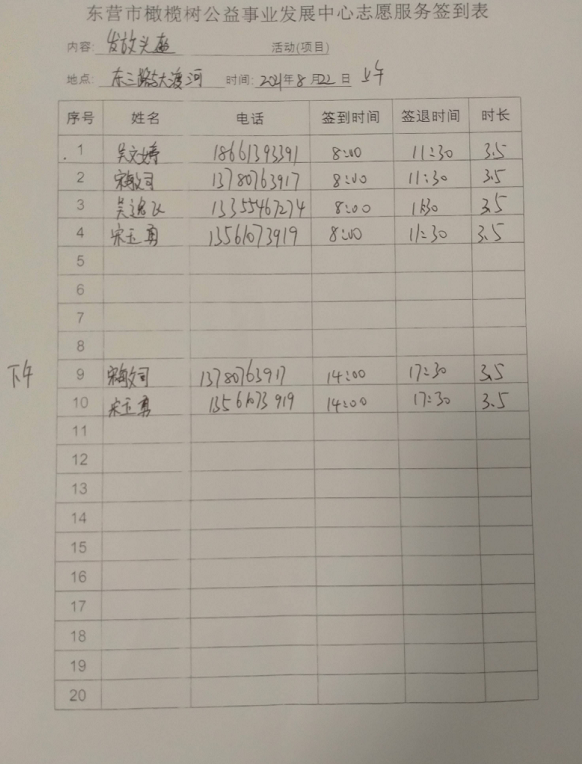 东营市橄榄树公益事业发展中心志愿服务签到表
内容: 发放头盔 活动(项目)
地点: 东三路与大渡河 时间: 2021年8月22日 上午
序号 姓名 电话 签到时间 签退时间 时长
1 吴文婷 18661393391 8:00 11:30 3.5
2 宋敏司 13780763917 8:00 11:30 3.5
3 吴 13355467274 8:00 11:30 3.5
4 宋玉勇 13561073919 8:00 11:30 3.5
5
6
7
8
下午 9 宋敏司 13780763917 14:00 17:30 3.5
10 宋玉勇 13561073919 14:00 17:30 3.5
11
12
13
14
15
16
17
18
19
20